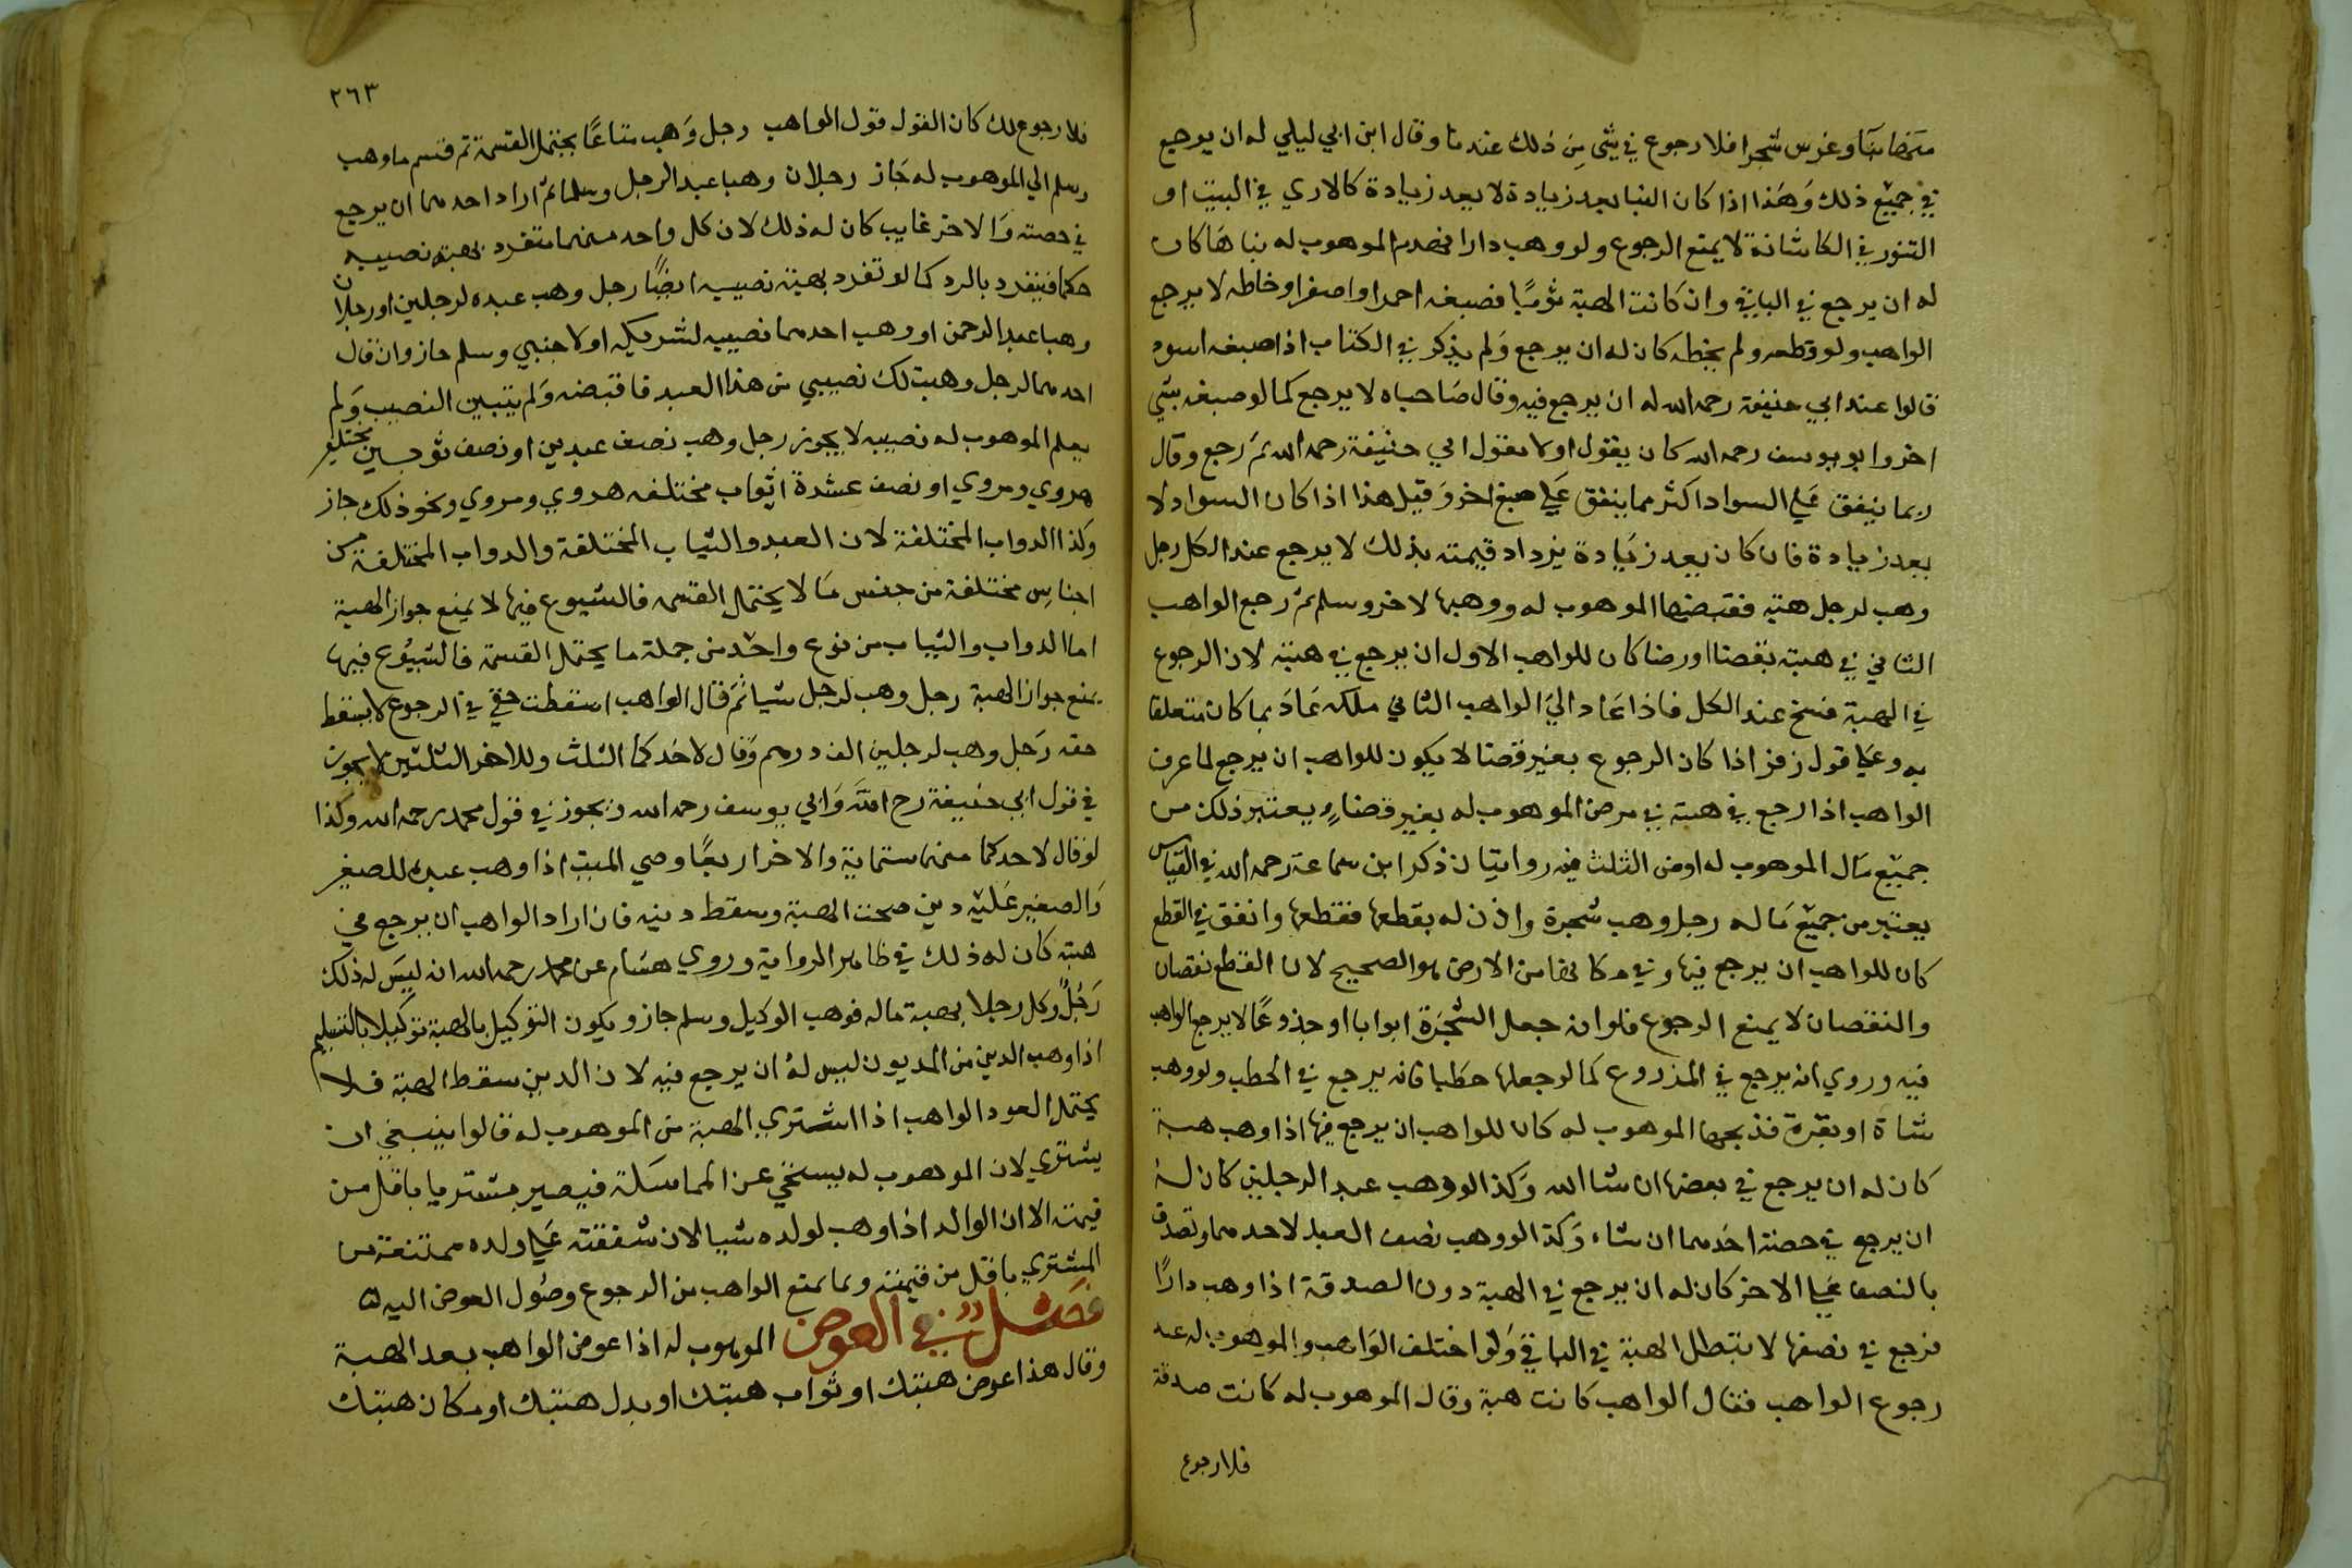 وغرس شجرا فلا رجوع في شى من ذلك عندنا وقال ابن ابي ليلي له ان يرجع
في جميع ذلك وهذا اذا كان البنا يعد زيادة لا يعد زيادة كالاري في البيت او
التنور في الكاشانة لا يمنع الرجوع ولو وهب دارا فهدم الموهوب له بناها كان
له ان يرجع في الباقي وان كانت الهبة ثوبًا فصبغه احمر او اصفر او خاطه لا يرجع
الواهب ولو قطعه ولم يخطه كان له ان يرجع ولم يذكر في الكتاب اذا صبغه اسود
قالوا عند ابي حنيفة رحمه الله له ان يرجع فيه وقال صاحباه لا يرجع كما لو صبغه بشي
اخر وابو يوسف رحمه الله كان يقول اولا بقول ابي حنيفة رحمه الله ثم رجع وقال
ربما ينفق علي السواد اكثر مما ينفق علي صبغ اخر وقيل هذا اذا كان السواد لا
يعد زيادة فان كان يعد زيادة يزداد قيمته بذلك لا يرجع عند الكل رجل
وهب لرجل هبة فقبضها الموهوب له ووهبها لاخر وسلم ثم رجع الواهب
الثاني في هبته بقضا او رضا كان للواهب الاول ان يرجع في هبته لان الرجوع
في الهبة فسخ عند الكل فاذا عاد الي الواهب الثاني ملكه عاد بما كان متعلقا
به وعلي قول زفر اذا كان الرجوع بغير قضا لا يكون للواهب ان يرجع لما عرف
الواهب اذا رجع في هبته في مرض الموهوب له بغير قضاءٍ يعتبر ذلك من
جميع مال الموهوب له او من الثلث فيه روايتان ذكر ابن سماعة رحمه الله في القياس
يعتبر من جميع ماله رجل وهب شجرة واذن له بقطعها فقطعها وانفق في القطع
كان للواهب ان يرجع فيها وفي مكانها من الارض هو الصحيح لان القطع نقصان
والنقصان لا يمنع الرجوع فلو انه جعل الشجرة ابوابا او جذوعًا لا يرجع الواهب
فيه وروي انه يرجع في المذروع كما لو جعلها حطبا فانه يرجع في الحطب ولو وهب
شاة او بقرة فذبحها الموهوب له كان للواهب ان يرجع فيها اذا وهب هبة
كان له ان يرجع في بعضها ان شا الله وكذا لو وهب عبدا لرجلين كان له
ان يرجع في حصة احدهما ان شاء وكذا لو وهب نصف العبد لاحدهما وتصدق
بالنصف علي الاخر كان له ان يرجع في الهبة دون الصدقة اذا وهب دارًا
فرجع في نصفها لا تبطل الهبة في الباقي ولو اختلف الواهب والموهوب له عند
رجوع الواهب فقال الواهب كانت هبة وقال الموهوب له كانت صدقة
فلا رجوع
٢٦٣
فلا رجوع لك كان القول قول الواهب رجل وهب متاعًا يحتمل القسمة ثم قسم ما وهب
وسلم الي الموهوب له جاز رجلان وهبا عبدا لرجل وسلما ثم اراد احدهما ان يرجع
في حصته والاخر غايب كان له ذلك لان كل واحد منهما متفرد بهبة نصيبه
حكما فينفرد بالرد كما لو تفرد بهبة نصيبه ايضًا رجل وهب عبده لرجلين او رجلان
وهبا عبدا لرجل او وهب احدهما نصيبه لشريكه او لاجنبي وسلم جاز وان قال
احدهما لرجل وهبت لك نصيبي من هذا العبد فاقبضه ولم يتبين النصيب ولم
يعلم الموهوب له نصيبه لا يجوز رجل وهب نصف عبدين او نصف ثوبين مختلفين
هروي ومروي او نصف عشرة اثواب مختلفه هروي ومروي ونحو ذلك جاز
وكذا الدواب المختلفة لان العبد والثياب المختلفة والدواب المختلفة من
اجناسٍ مختلفة من جنس ما لا يحتمل القسمه فالشيوع فيها لا يمنع جواز الهبة
اما الدواب والثياب من نوع واحد من جملة ما يحتمل القسمة فالشيوع فيها
يمنع جواز الهبة رجل وهب لرجل شيا ثم قال الواهب اسقطت حقي في الرجوع لا يسقط
حقه رجل وهب لرجلين الف درهم وقال لاحدكما الثلث وللاخر الثلثين لا يجوز
في قول ابي حنيفة رح الله وابي يوسف رحمه الله ويجوز في قول محمد رحمه الله وكذا
لو قال لاحدكما منها ستماية والاخر اربعًا وصي الميت اذا وهب عبده للصغير
والصغير عليه دين صحت الهبة وسقط دينه فان اراد الواهب ان يرجع في
هبته كان له ذلك في ظاهر الرواية وروي هشام عن محمد رحمه الله انه ليس له ذلك
رجلٌ وكل رجلا بهبة ماله فوهب الوكيل وسلم جاز ويكون التوكيل بالهبة توكيلا بالتسليم
اذا وهب الدين من المديون ليس له ان يرجع فيه لان الدين سقط الهبة فلا
يحتمل العود الواهب اذا اشتري الهبة من الموهوب له قالوا ينبغي ان
يشتري لان الموهوب له يستحي عن المماسكة فيصير مشتريا باقل من
قيمته الا ان الوالد اذا وهب لولده شيا لان شفقته علي ولده ممتنعة من
المشتري باقل من قيمته ومما يمنع الواهب من الرجوع وصول العوض اليه
فصل في العوض الموهوب له اذا عوض الواهب بعد الهبة
وقال هذا عوض هبتك او ثواب هبتك او بدل هبتك او مكان هبتك